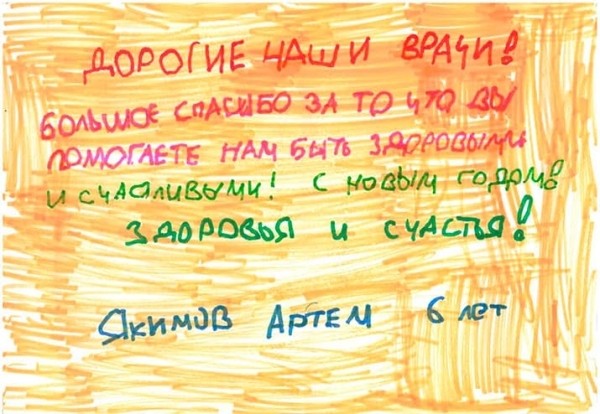 ДОРОГИЕ НАШИ ВРАЧИ!
БОЛЬШОЕ СПАСИБО ЗА ТО ЧТО ВЫ
ПОМОГАЕТЕ НАМ БЫТЬ ЗДОРОВЫМИ
И СЧАСЛИВЫМИ! С НОВЫМ ГОДОМ!
ЗДОРОВЬЯ И СЧАСТЬЯ!
ЯКИМОВ АРТЕМ 6 ЛЕТ